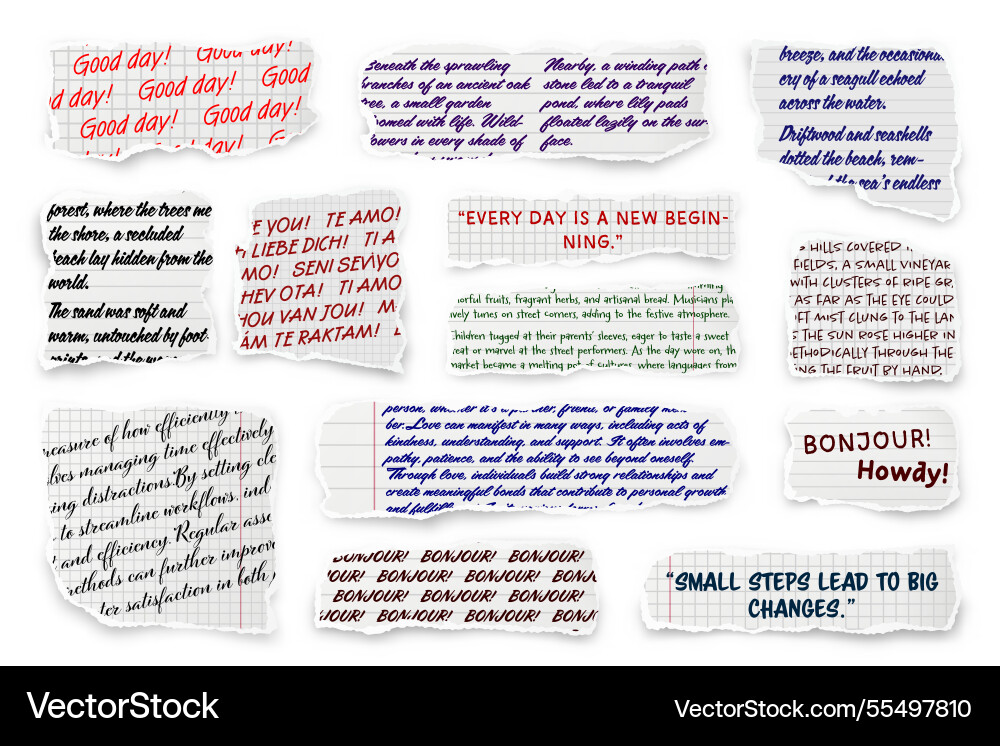 Good day! Good day!
d day! Good day! Good
Good day! Good day!
beneath the sprawling
branches of an ancient oak
tree, a small garden
oomed with life. Wild-
owers in every shade of
Nearby, a winding path
stone led to a tranquil
pond, where lily pads
floated lazily on the sur-
face.
breeze, and the occasional
cry of a seagull echoed
across the water.
Driftwood and seashells
dotted the beach, rem-
the sea's endless
forest, where the trees me
the shore, a secluded
beach lay hidden from the
world.
The sand was soft and
warm, untouched by foot-
E YOU! TE AMO!
H LIEBE DICH! TI A
MO! SENI SEVIYO
HEV OTA! TI AMO!
HOU VAN JOU! M
ÄM TE RAKTAM! L
"EVERY DAY IS A NEW BEGIN-
NING."
orful fruits, fragrant herbs, and artisanal bread. Musicians pla
vely tunes on street corners, adding to the festive atmosphere.
Children tugged at their parents' sleeves, eager to taste a sweet
reat or marvel at the street performers. As the day wore on, th
market became a melting pot of cultures, where languages from
HILLS COVERED
FIELDS, A SMALL VINEYAR
WITH CLUSTERS OF RIPE GR
AS FAR AS THE EYE COULD
FT MIST CLUNG TO THE LAN
S THE SUN ROSE HIGHER IN
ETHODICALLY THROUGH THE
NG THE FRUIT BY HAND.
easure of how efficiently
lves managing time effectively
ing distractions.By setting cle
to streamline workflows, ind
and efficiency. Regular asse
ethods can further improve
ter satisfaction in both
person, whether it's a partner, friend, or family mem-
ber.Love can manifest in many ways, including acts of
kindness, understanding, and support. It often involves em-
pathy, patience, and the ability to see beyond oneself.
Through love, individuals build strong relationships and
create meaningful bonds that contribute to personal growth
BONJOUR!
Howdy!
BONJOUR! BONJOUR! BONJOUR!
JOUR! BONJOUR! BONJOUR! BONJ
BONJOUR! BONJOUR! BONJOUR!
JOUR! BONJOUR! BONJOUR! BONJ
"SMALL STEPS LEAD TO BIG
CHANGES."
VectorStock®
VectorStock.com/55497810